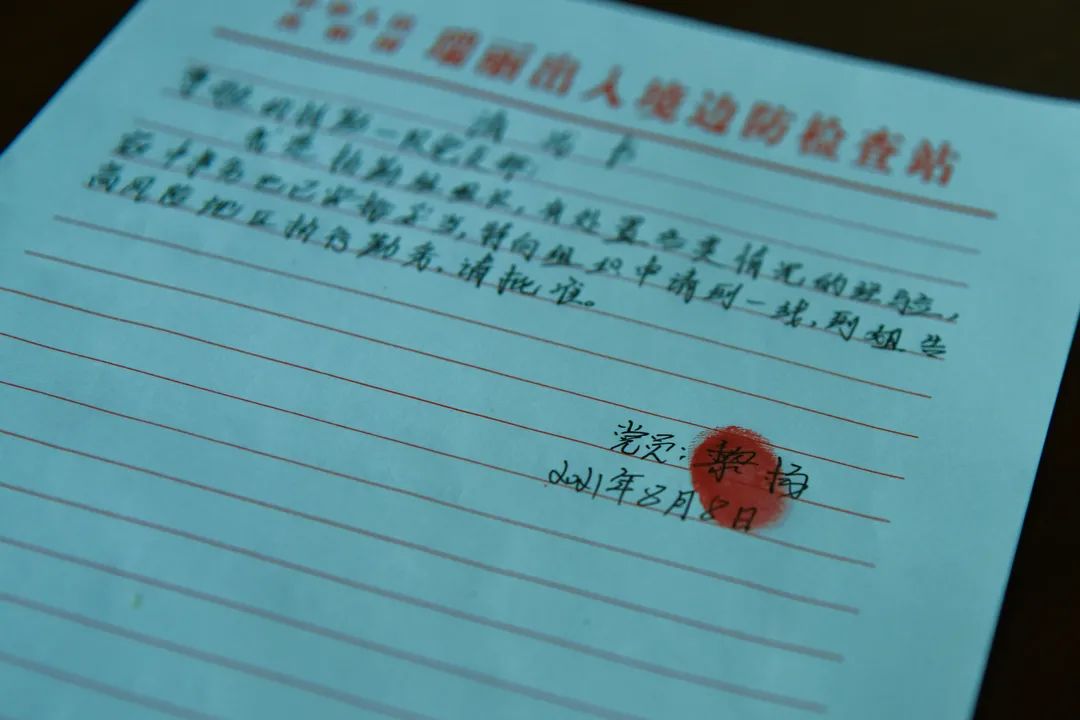 中华人民共和国 瑞丽出入境边防检查站
请战书
尊敬的执勤一队党支部:
我是执勤组组长,有处置突变情况的经验,
家中事务也已安排妥当,特向组织申请到一线,到姐告
高风险地区执行勤务,请批准。
党员:黎梅
2021年8月8日